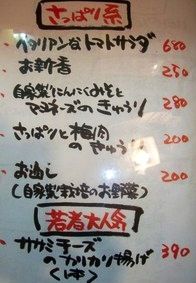 さっぱり系
イタリアンなトマトサラダ 680
お新香 250
自家製にんにくみそと
マヨネーズのきゅうり 280
さっぱりと梅肉
のきゅうり 200
お通し 200
(自家製栽培のお野菜)
若者大人気
ササミチーズ
のカリカリ揚げ 390
(1本)